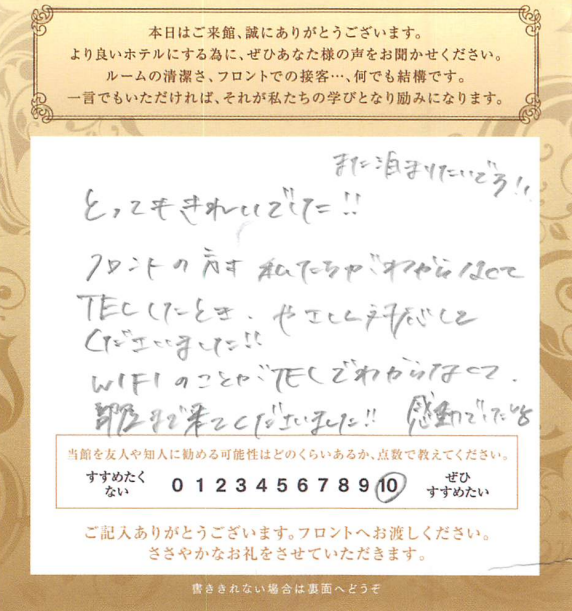 本日はご来館、誠にありがとうございます。
より良いホテルにする為に、ぜひあなた様の声をお聞かせください。
ルームの清潔さ、フロントでの接客…、何でも結構です。
一言でもいただければ、それが私たちの学びとなり励みになります。
また泊まりたいでう!!
とってもきれいでした!!
フロントの方も 私たちがわからなくて
TELしたとき、やさしく対応して
くださいました!!
WIFIのことがTELでわからなくて、
部屋まで来てくださいました!! 感動でした
当館を友人や知人に勧める可能性はどのくらいあるか、点数で教えてください。
すすめたくない 0 1 2 3 4 5 6 7 8 9 10 ぜひすすめたい
ご記入ありがとうございます。フロントへお渡しください。
ささやかなお礼をさせていただきます。
書ききれない場合は裏面へどうぞ